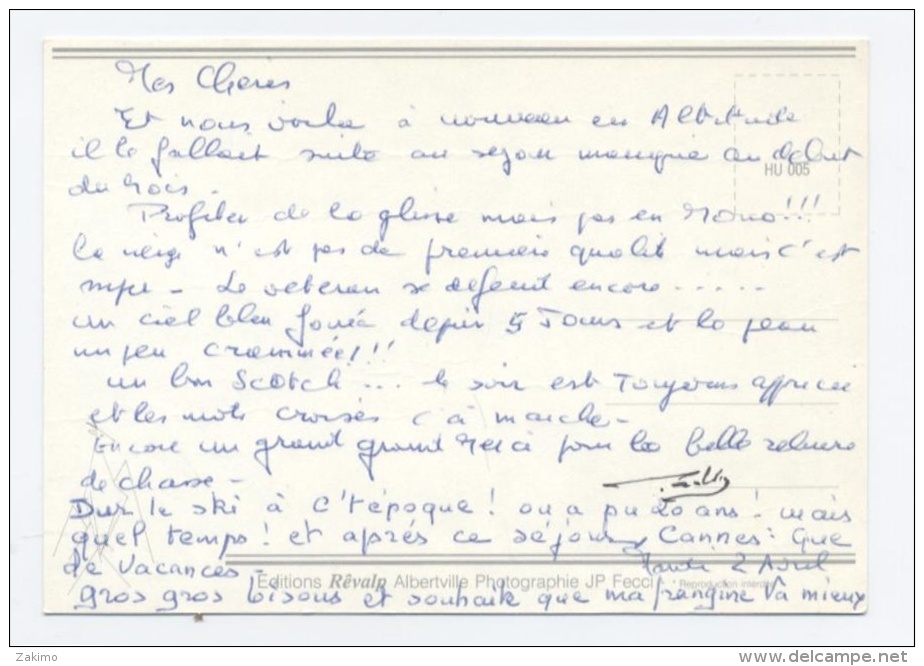 Mes Chères
Et nous voila à nouveau en Albertville
il le fallait suite au séjour manqué au début
HU 005
du mois.
Profiter de la glisse mais pas en Mono!!!
la neige n'est pas de première qualité mais c'est
- Le veteran se defend encore.....
un ciel bleu foncé depuis 5 Jours et la peau
un peu cramée!!!
un bon Scotch... le soir est Toujours apprécié
et les mots croisés ça marche-
Encore un grand grand Merci pour la belle
de chasse-
Dur le ski à c't'époque! on a pu 20 ans! mais
quel temps! et après ce séjour, Cannes: Que
de Vacances - 2 Avril
Editions Rêvalp Albertville Photographie JP Fecci Reproduction interdite
Gros gros bisous et souhaite que ma frangine va mieux
Zakimo
www.delcampe.net